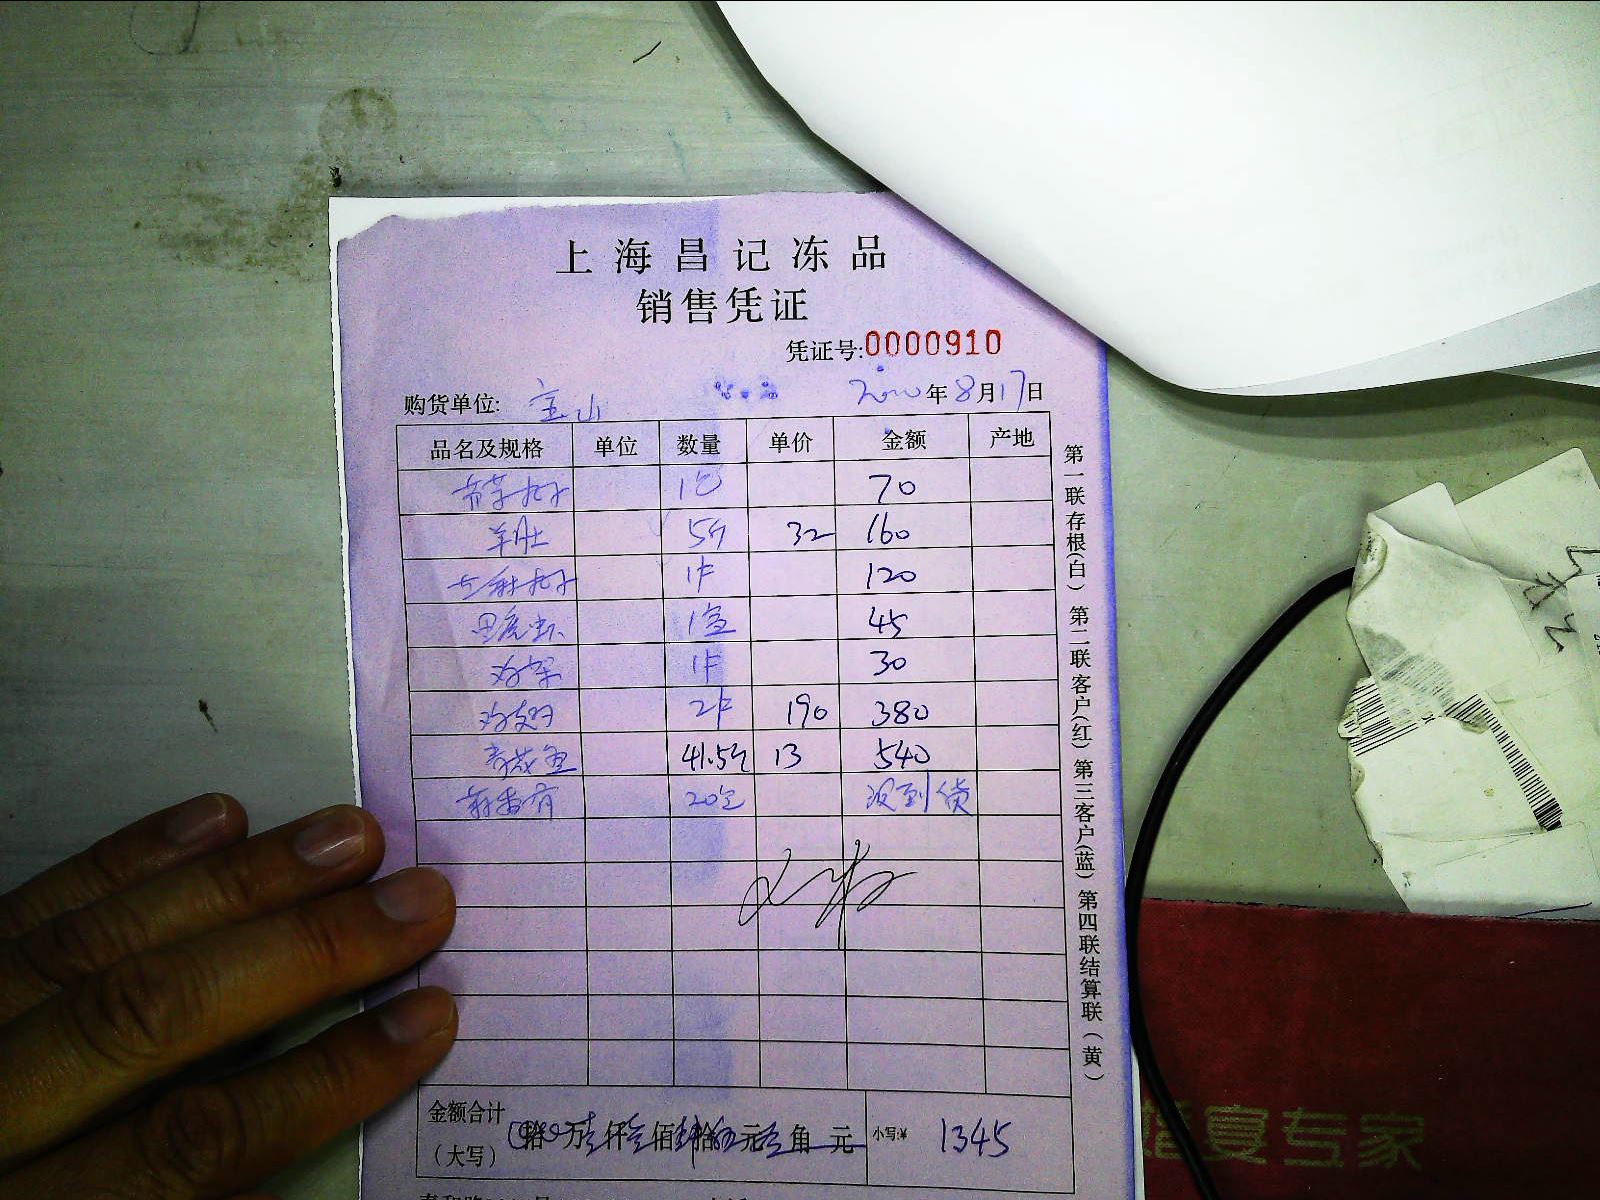 上海昌记冻品
销售凭证
凭证号:0000910
购货单位: 宝山 年8月17日
品名及规格 单位 数量 单价 金额 产地
荠菜丸子 1包 70
羊肚 5斤 32 160
丸子 1件 120
黑虎虾 1盒 45
鸡架 1件 30
鸡 2件 190 380
41.5斤 13 540
20包 没到货
金额合计
(大写) 拾 万 仟 佰 拾 元 角 元 小写:¥ 1345
第一联存根(白) 第二联客户(红) 第三客户(蓝) 第四联结算联(黄)
宴专家